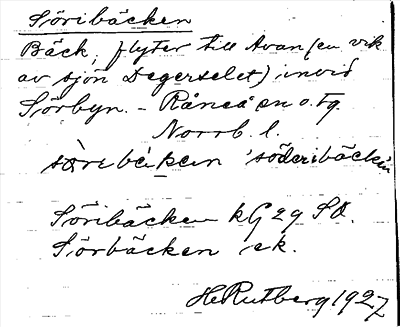 Söribäcken
Bäck, flyter till Avan (en vik
av sjön Degerselet) invid
Sörbyn. - Råneå sn o. tg.
Norrb. l.
söribäcken 'söderibäcken
Söribäcken kG 29 SO.
Sörbäcken ek.
H Rutberg 1927